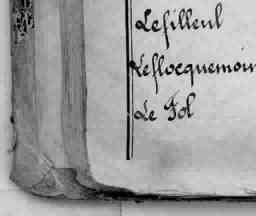 Lefilleul
Leflocquemoin
Le Fol